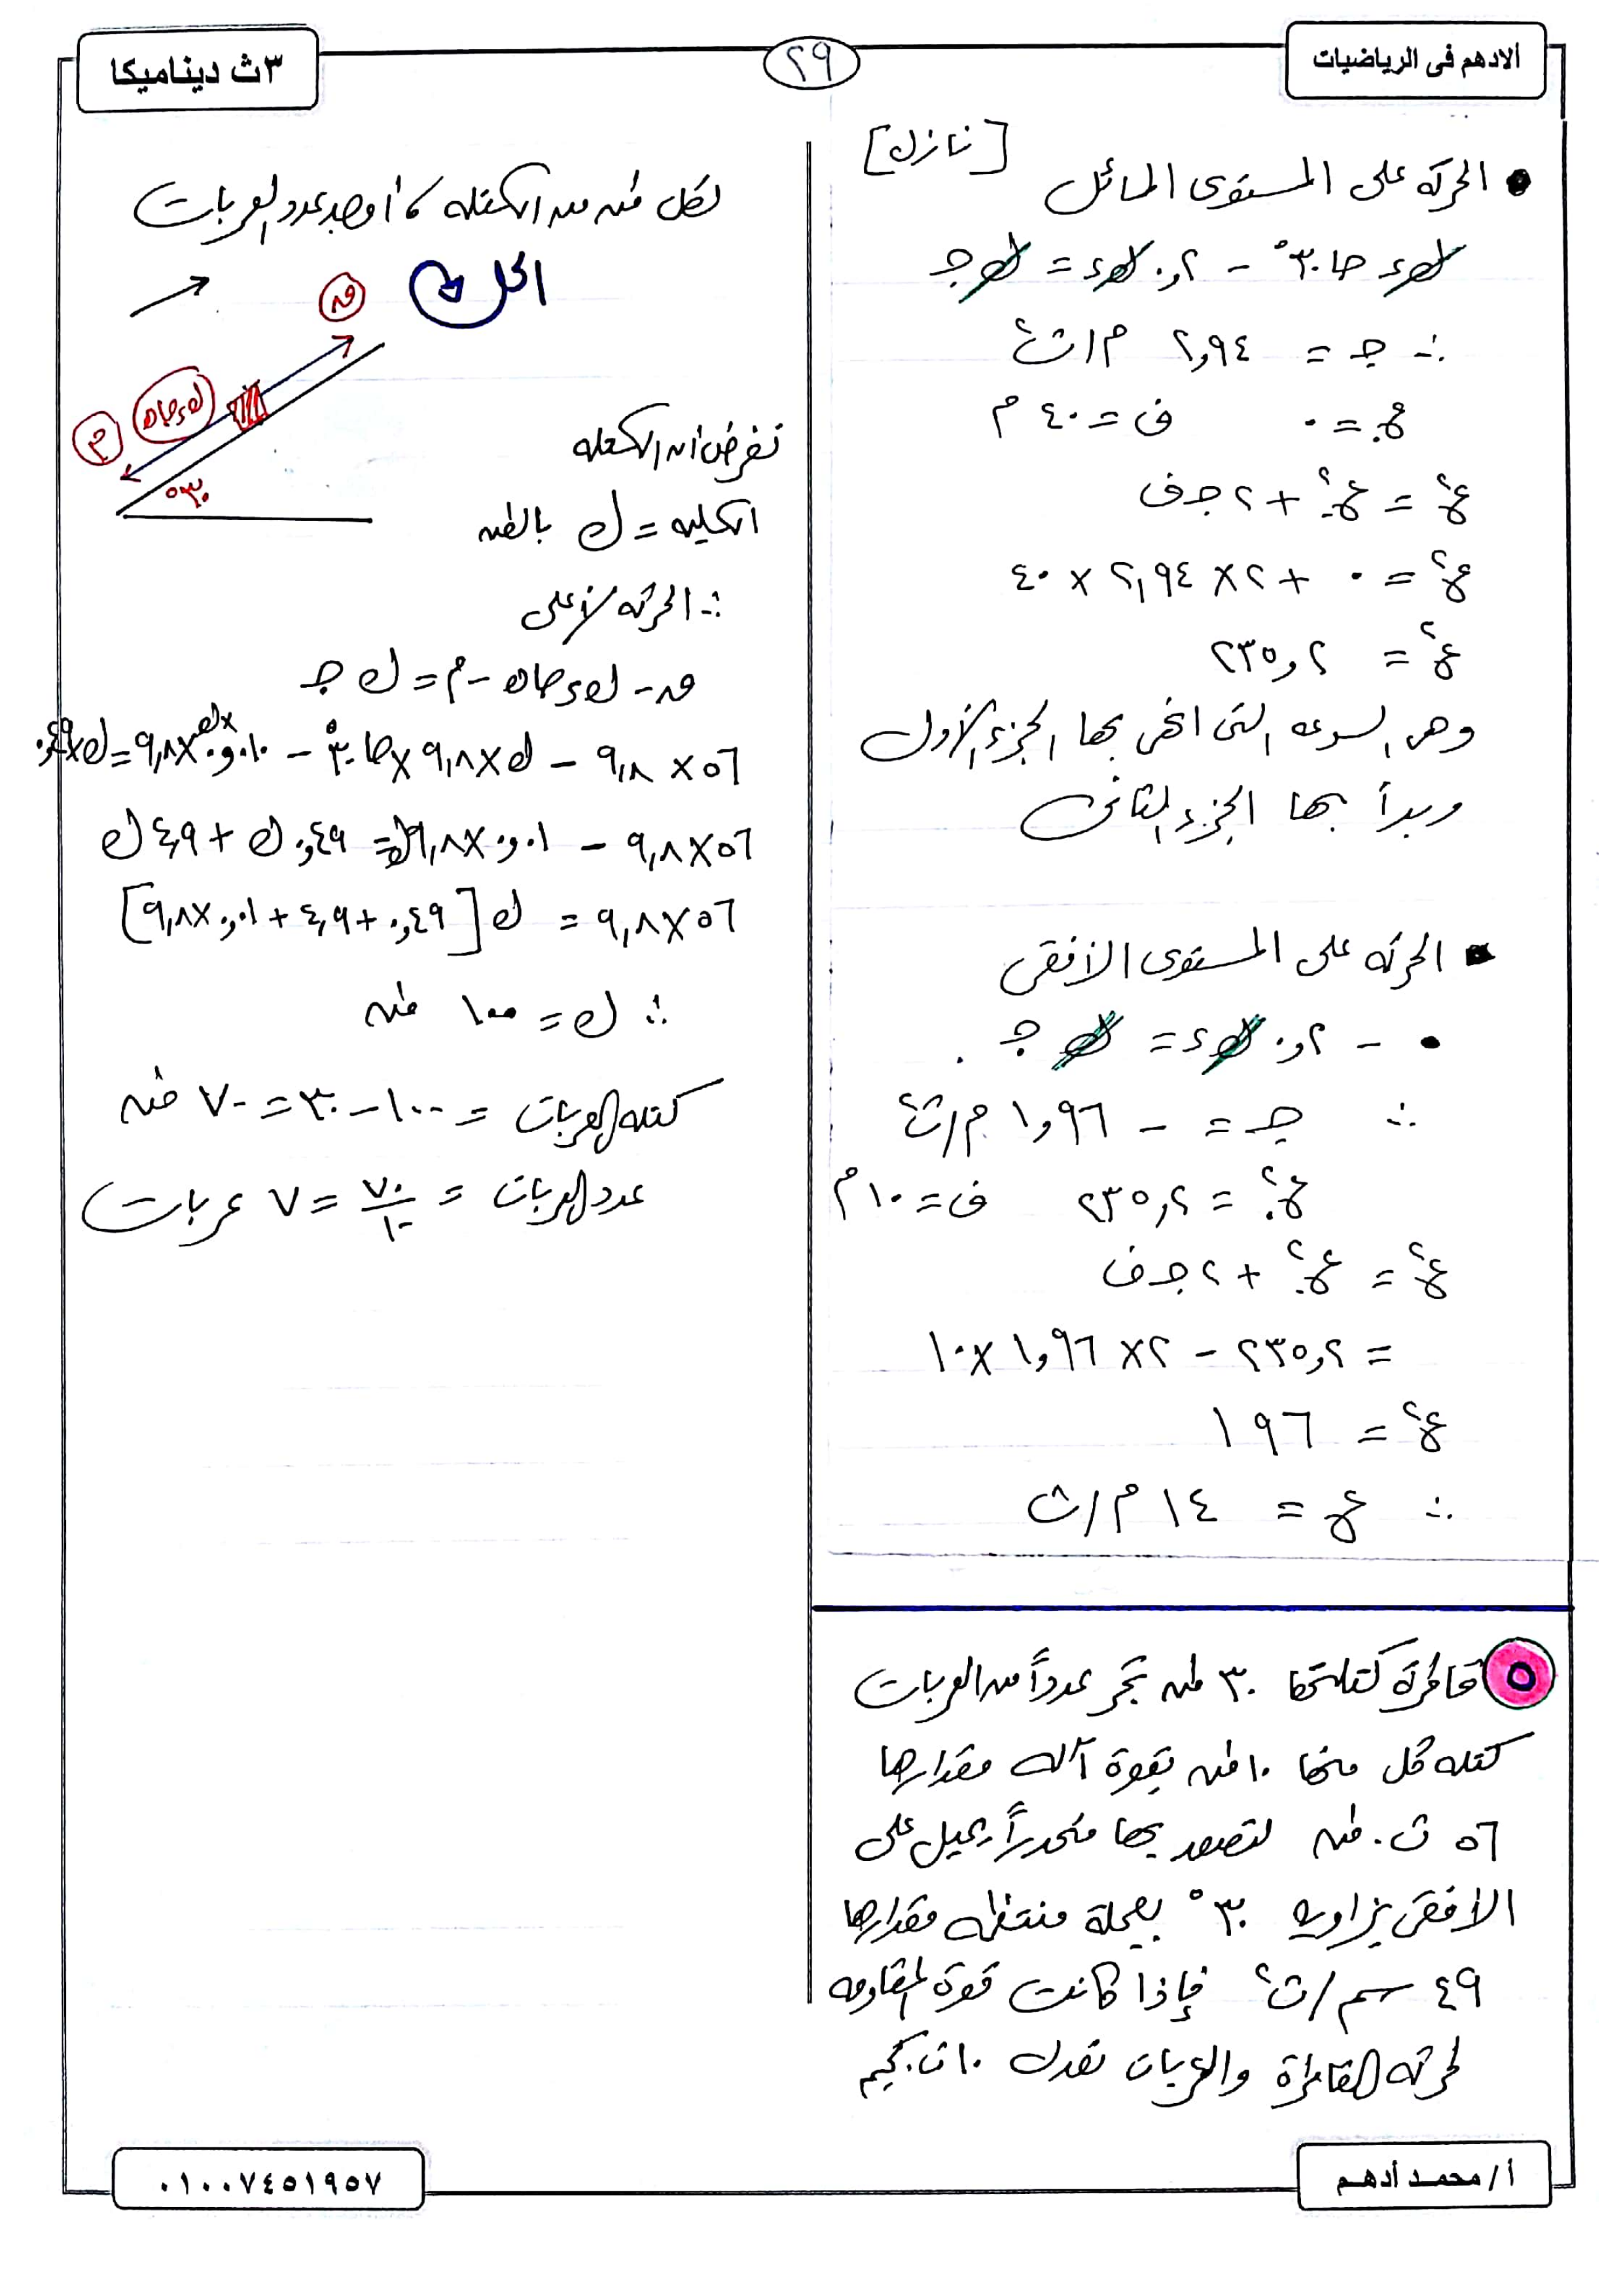 الادهم فى الرياضيات
٢٩
٣ث ديناميكا
• الحركة على المستوى المائل [نازل]
ك ء حا ٣٠° - ٢و٠ ك ء = ك جـ
∴ جـ = ٢,٩٤ م/ث٢
ع٠ = ٠ ف = ٤٠ م
ع٢ = ع٠٢ + ٢ جـ ف
ع٢ = ٠ + ٢ × ٢,٩٤ × ٤٠
ع٢ = ٢٣٥,٢
وهى السرعه التى انهى بها الجزء الاول
وبدأ بها الجزء الثانى
الحركه على المستوى الافقى
٠ - ٢و٠ ك ء = ك جـ
∴ جـ = - ١,٩٦ م/ث٢
ع٠٢ = ٢٣٥,٢ ف = ١٠ م
ع٢ = ع٠٢ + ٢ جـ ف
= ٢٣٥,٢ - ٢ × ١,٩٦ × ١٠
ع٢ = ١٩٦
∴ ع = ١٤ م/ث
٥ قاطرة كتلتها ٣٠ طن تجر عدداً من العربات
كتله كل منها ١٠ طن بقوة آله مقدارها
٥٦ ث.طن لتصعد بها منحدراً يميل على
الافقى بزاويه ٣٠° بعجلة منتظمه مقدارها
٤٩ سم/ث٢ فإذا كانت قوة المقاومه
لحركه القاطرة والعربات تعدل ١٠ ث.كجم
لكل طن من الكتله ، أوجد عدد العربات
الحل
ق
ك ء حا هـ
م
٣٠°
نفرض أن الكتله
الكليه = ك بالطن
∴ الحركه لأعلى
ق - ك ء حا هـ - م = ك جـ
٥٦ × ٩,٨ - ك × ٩,٨ × حا ٣٠° - ٠,٠١٠ × ك × ٩,٨ = ك × ٠,٤٩
٥٦ × ٩,٨ - ٠,٠١ × ٩,٨ ك = ٠,٤٩ ك + ٤,٩ ك
٥٦ × ٩,٨ = ك [٠,٤٩ + ٤,٩ + ٠,٠١ × ٩,٨]
∴ ك = ١٠٠ طن
كتله العربات = ١٠٠ - ٣٠ = ٧٠ طن
عدد العربات = ٧٠/١٠ = ٧ عربات
أ / محمـد أدهـم
٠١٠٠٧٤٥١٩٥٧